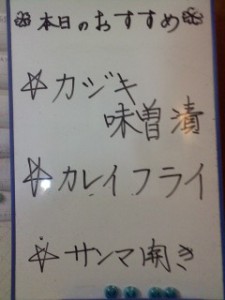 本日のおすすめ
☆カジキ
味噌漬
☆カレイフライ
☆サンマ開き